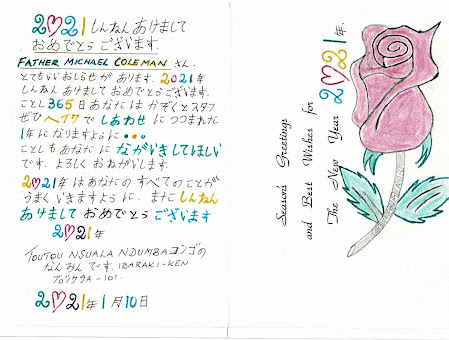 2021 しんねん あけまして
おめでとう ございます.
FATHER MICHAEL COLEMAN さん.
とてもいい おしらせ が あります. 2021年
しんねん あけまして おめでとう ございます.
ことし 365日 あなたは かぞくと スタフ
ぜひ ヘイワ で しあわせ に つつまれた
1年に なりますように •••
ことしも あなたに ながいきしてほしい
です. よろしく おねがいします.
2021年は あなたの すべての ことが
うまく いきますように. またに しんねん
あけまして おめでとう ございます
2021年
TOUTOU NSUALA NDUMBA コンゴの
なんみん です. IBARAKI-KEN
-101.
2021年 1月 10日
Season's Greetings
and Best Wishes for
The New Year 2021年.